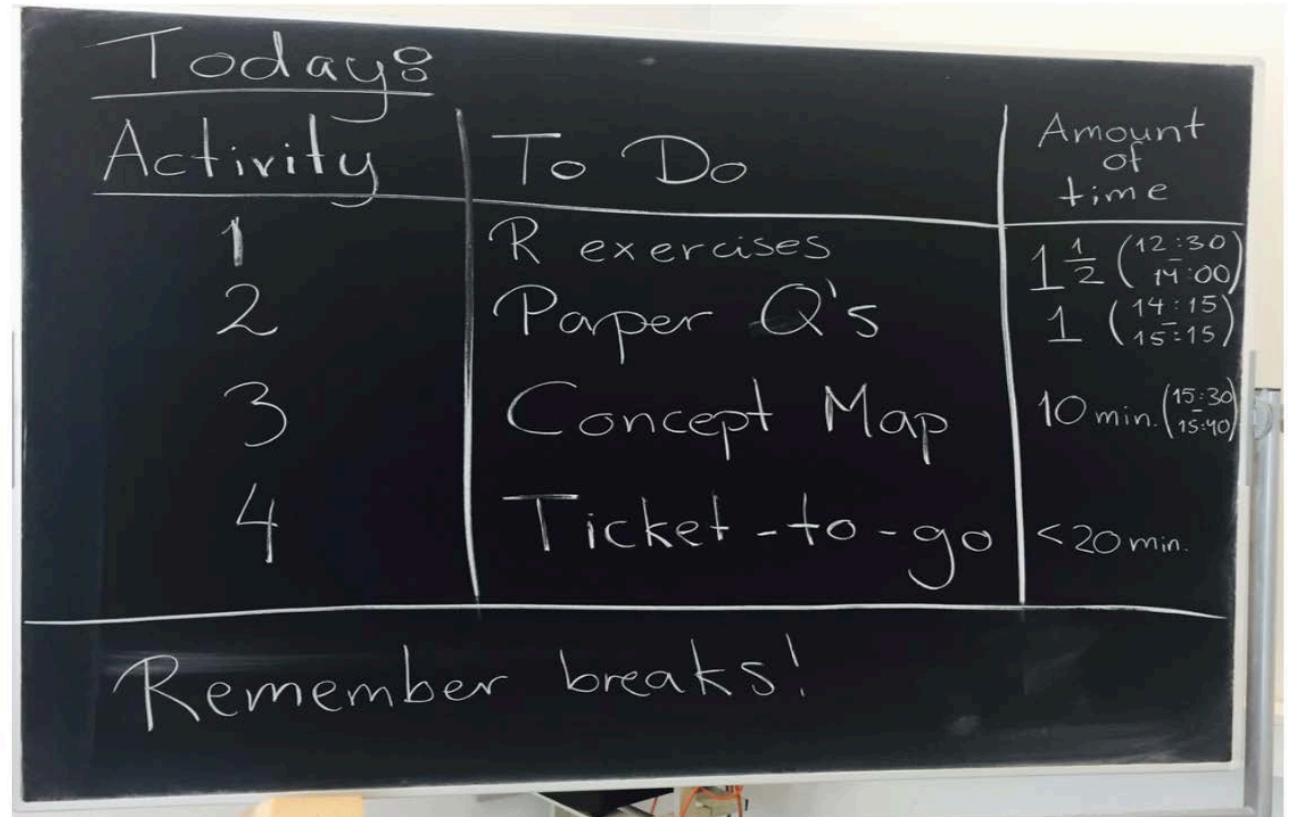 Today:
Activity To Do Amount of time
1 R exercises 1 1/2 (12:30 - 14:00)
2 Paper Q's 1 (14:15 - 15:15)
3 Concept Map 10 min. (15:30 - 15:40)
4 Ticket-to-go <20 min.
Remember breaks!